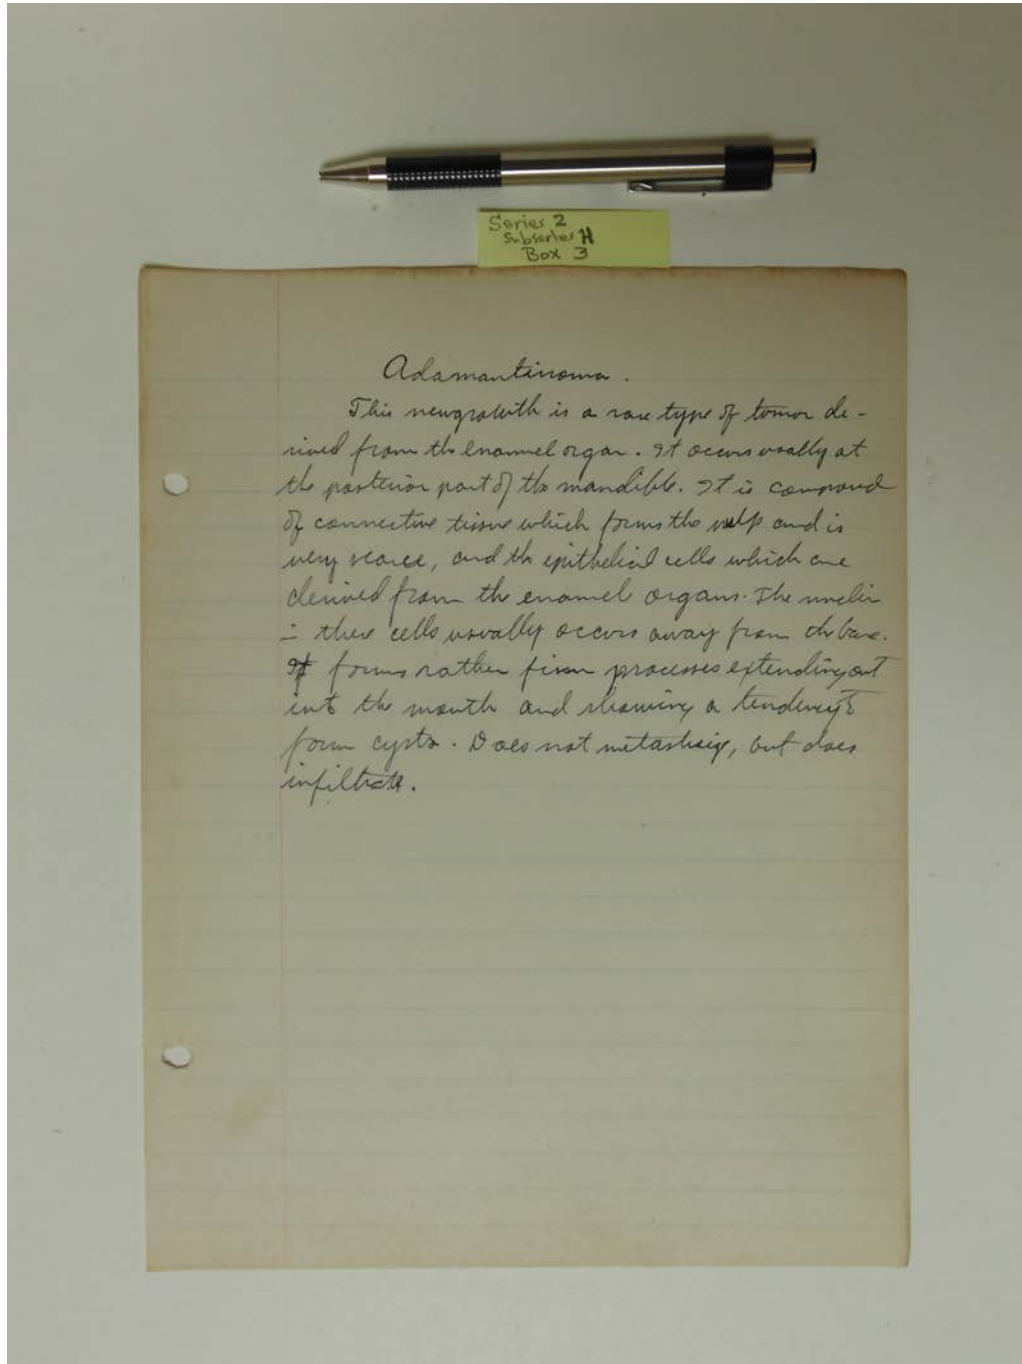 Series 2
Subseries H
Box 3
Adamantinoma.
This newgrowth is a rare type of tumor de-
rived from the enamel organ. It occurs usually at
the posterior part of the mandible. It is composed
of connective tissue which forms the and is
very scarce, and the epithelial cells which are
derived from the enamel organs. The nuclei
these cells usually occurs away from the base.
It forms rather firm processes extending out
into the mouth and showing a tendency to
form cysts. Does not metastasize, but does
infiltrate.